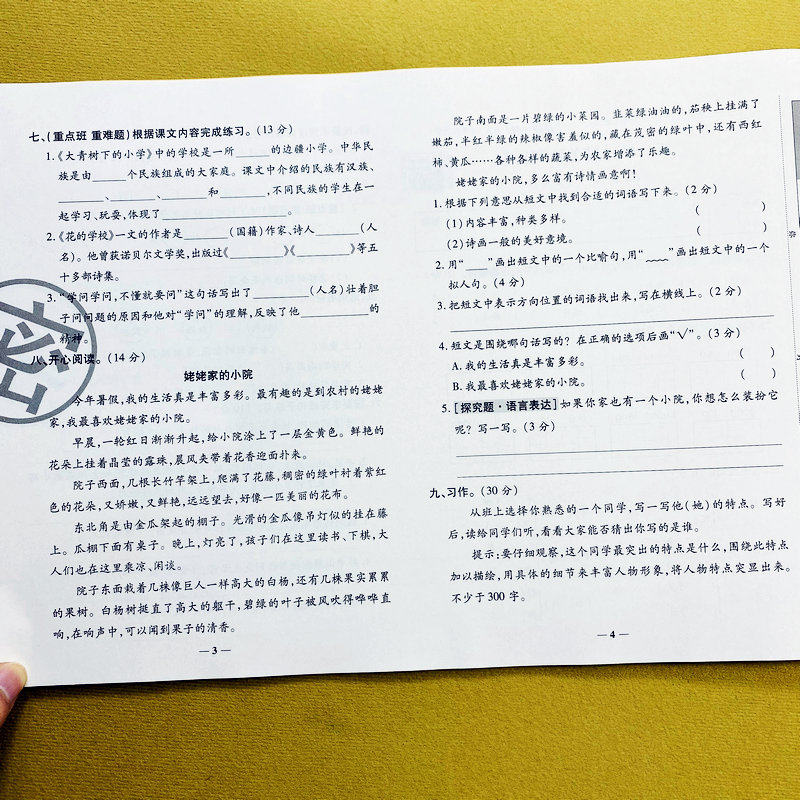 七、(重点班 重难题)根据课文内容完成练习。(13分)
1.《大青树下的小学》中的学校是一所______的边疆小学。中华民
族是由______个民族组成的大家庭。课文中介绍的民族有汉族、
________、________、________和________,不同民族的学生在一
起学习、玩耍,体现了________________。
2.《花的学校》一文的作者是________(国籍)作家、诗人________(人
名)。他曾获诺贝尔文学奖,出版过《________》《________》等五
十多部诗集。
3.“学问学问,不懂就要问”这句话写出了________(人名)壮着胆
子问问题的原因和他对“学问”的理解,反映了他__________的
精神。
八、开心阅读。(14分)
姥姥家的小院
今年暑假,我的生活真是丰富多彩。最有趣的是到农村的姥姥
家,我最喜欢姥姥家的小院。
早晨,一轮红日渐渐升起,给小院涂上了一层金黄色。鲜艳的
花朵上挂着晶莹的露珠,晨风夹带着花香迎面扑来。
院子西面,几根长竹竿架上,爬满了花藤,稠密的绿叶衬着紫红
色的花朵,又娇嫩,又鲜艳,远远望去,好像一匹美丽的花布。
东北角是由金瓜架起的棚子。光滑的金瓜像吊灯似的挂在藤
上。瓜棚下面有桌子。晚上,灯亮了,孩子们在这里读书、下棋,大
人们也在这里乘凉、闲谈。
院子东面栽着几株像巨人一样高大的白杨,还有几株果实累累
的果树。白杨树挺直了高大的躯干,碧绿的叶子被风吹得哗哗直
响,在响声中,可以闻到果子的清香。
—3—
密
院子南面是一片碧绿的小菜园。韭菜绿油油的,茄秧上挂满了
嫩茄,半红半绿的辣椒像害羞似的,藏在茂密的绿叶中,还有西红
柿、黄瓜……各种各样的蔬菜,为农家增添了乐趣。
姥姥家的小院,多么富有诗情画意啊!
1.根据下列意思从短文中找到合适的词语写下来。(2分)
(1)内容丰富,种类多样。 ( )
(2)诗画一般的美好意境。 ( )
2.用“____”画出短文中的一个比喻句,用“﹏﹏”画出短文中的一个
拟人句。(4分)
3.把短文中表示方向位置的词语找出来,写在横线上。(2分)
4.短文是围绕哪句话写的?在正确的选项后画“√”。(3分)
A.我的生活真是丰富多彩。 ( )
B.我最喜欢姥姥家的小院。 ( )
5.[探究题·语言表达]如果你家也有一个小院,你想怎么装扮它
呢?写一写。(3分)
九、习作。(30分)
从班上选择你熟悉的一个同学,写一写他(她)的特点。写好
后,读给同学们听,看看大家能否猜出你写的是谁。
提示:要仔细观察,这个同学最突出的特点是什么,围绕此特点
加以描绘,用具体的细节来丰富人物形象,将人物特点突显出来。
不少于300字。
—4—